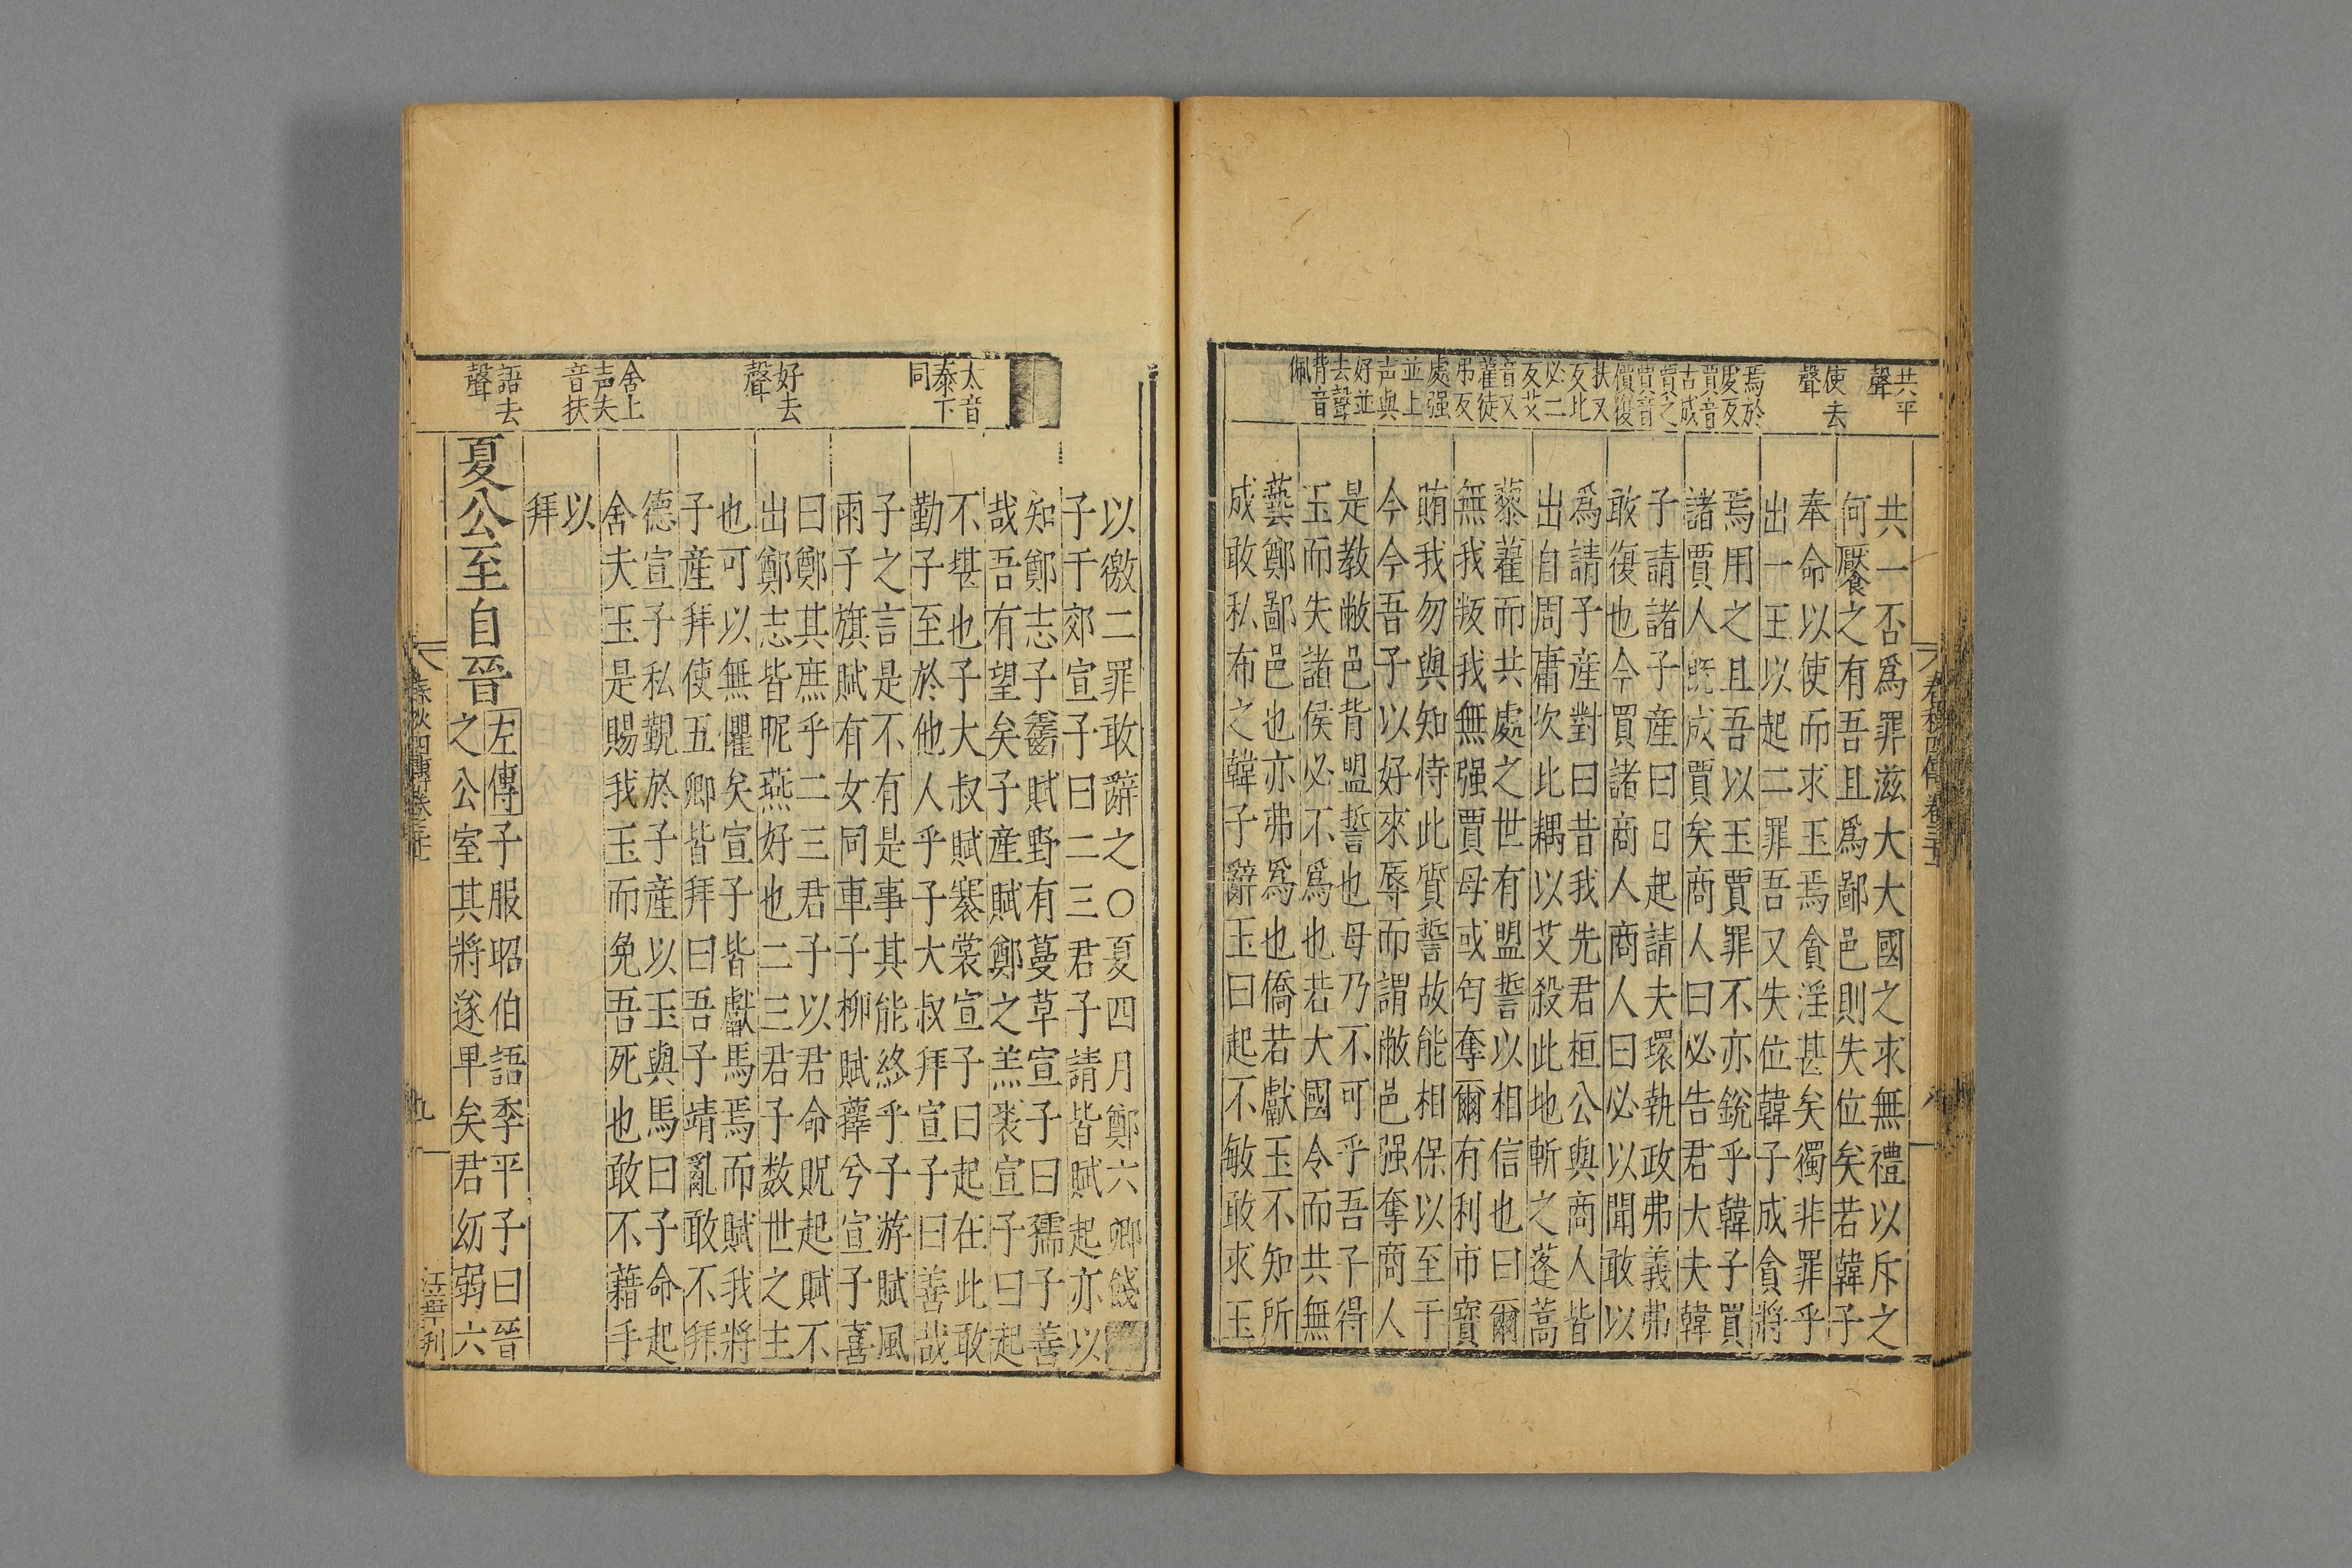 共平
聲
使去
聲
焉於
䖍反
賈音
古成
賈之
賈音
價復
扶又
反比
必二
反艾
音乂
藋徒
弔反
處强
並上
声與
好並
去聲
背音
佩
共一否爲罪滋大大國之求無禮以斥之
何饜之有吾且爲鄙邑則失位矣若韓子
奉命以使而求玉焉貪淫甚矣獨非罪乎
出一玉以起二罪吾又失位韓子成貪將
焉用之且吾以玉賈罪不亦銳乎韓子買
諸賈人既成賈矣商人曰必告君大夫韓
子請諸子産曰日起請夫環執政弗義弗
敢復也今買諸商人商人曰必以聞敢以
爲請子産對曰昔我先君桓公與商人皆
出自周庸次此耦以艾殺此地斬之蓬蒿
藜藋而共處之世有盟誓以相信也曰爾
無我叛我無强賈母或匄奪爾有利市寳
賄我勿與知恃此質誓故能相保以至于
今今吾子以好來辱而謂敝邑强奪商人
是教敝邑背盟誓也母乃不可乎吾子得
玉而失諸侯必不爲也若大國令而共無
藝鄭鄙邑也亦弗爲也僑若獻玉不知所
成敢私布之韓子辭玉曰起不敏敢求玉
太音
泰下
同
好去
聲
舍上
声夫
音扶
語去
聲
以徼二罪敢辭之○夏四月鄭六卿餞
子于郊宣子曰二三君子請皆賦起亦以
知鄭志子齹賦野有蔓草宣子曰孺子善
哉吾有望矣子産賦鄭之羔裘宣子曰起
不堪也子大叔賦褰裳宣子曰起在此敢
勤子至於他人乎子大叔拜宣子曰善哉
子之言是不有是事其能終乎子游賦風
雨子旗賦有女同車子柳賦蘀兮宣子喜
曰鄭其庶乎二三君子以君命貺起賦不
出鄭志皆昵燕好也二三君子数世之主
也可以無懼矣宣子皆獻馬焉而賦我將
子産拜使五卿皆拜曰吾子靖亂敢不拜
德宣子私覲於子産以玉與馬曰子命起
舍夫玉是賜我玉而免吾死也敢不藉手
以
拜
夏公至自晉
左傳子服昭伯語季平子曰晉
之公室其將遂卑矣君幼弱六
春秋四傳卷
九
江寧刊